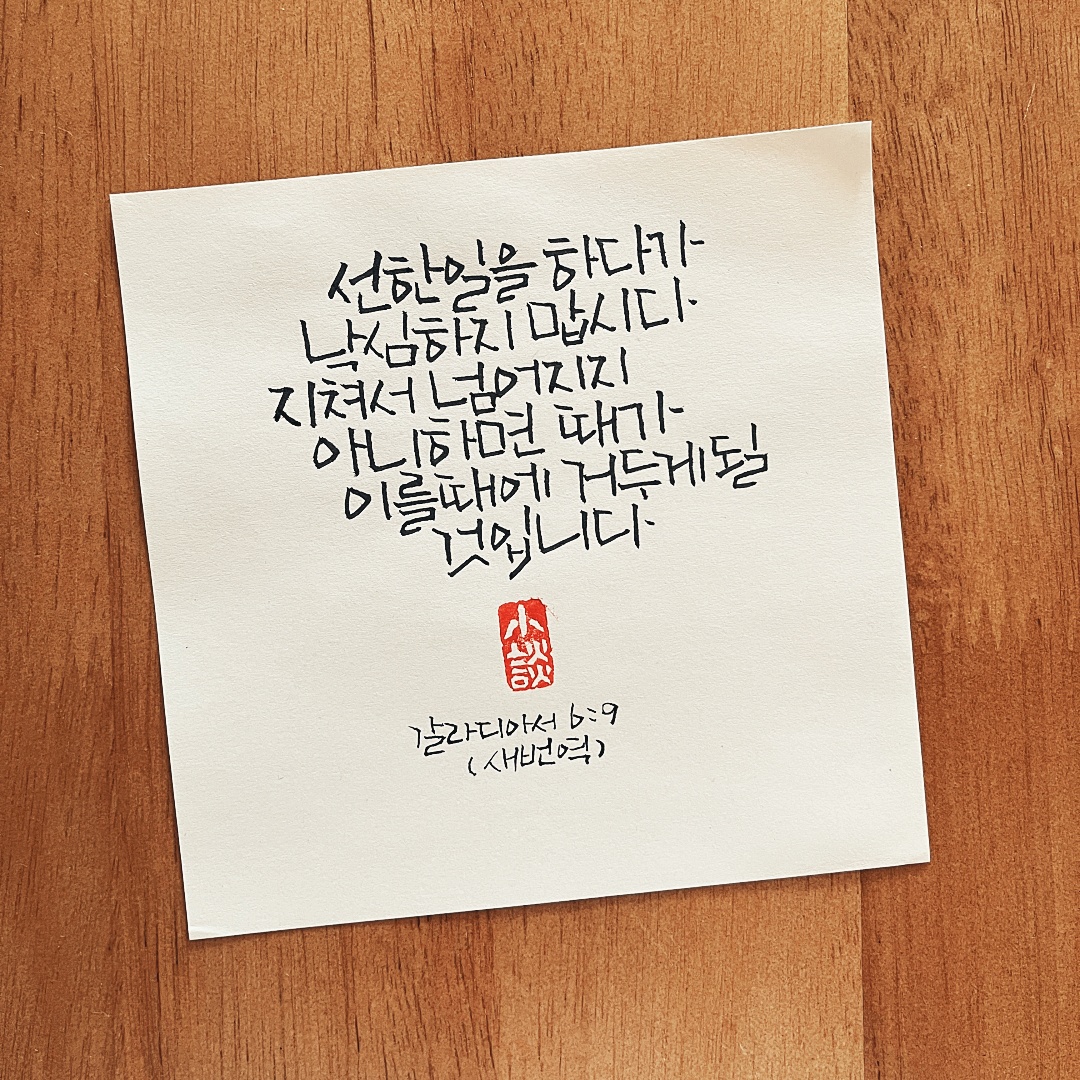 선한일을 하다가
낙심하지 맙시다
지쳐서 넘어지지
아니하면 때가
이를때에 거두게될
것입니다
小
談
갈라디아서 6:9
(새번역)